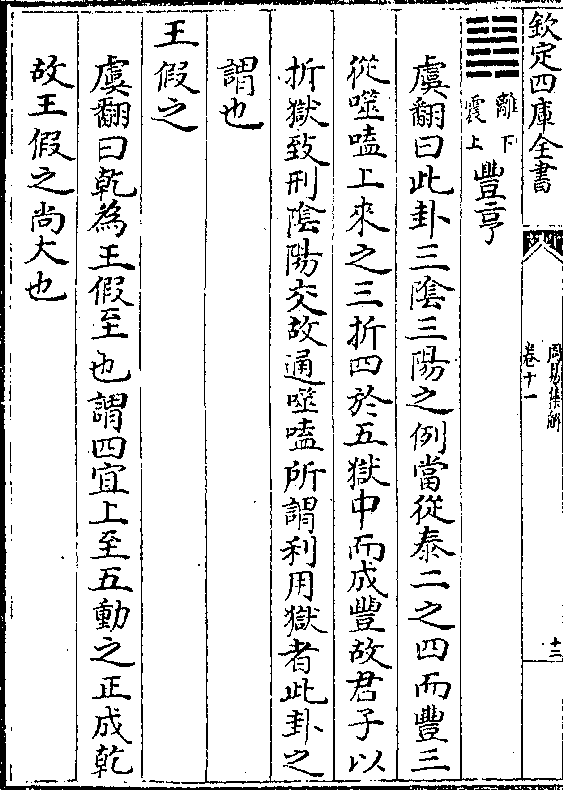 欽定四庫全書
周易集解
卷十一
十三
離下
震上
豐亨
虞翻曰此卦三陰三陽之例當從泰二之四而豐三
從噬嗑上來之三折四於五獄中而成豐故君子以
折獄致刑陰陽交故通噬嗑所謂利用獄者此卦之
謂也
王假之
虞翻曰乾為王假至也謂四宜上至五動之正成乾
故王假之尚大也